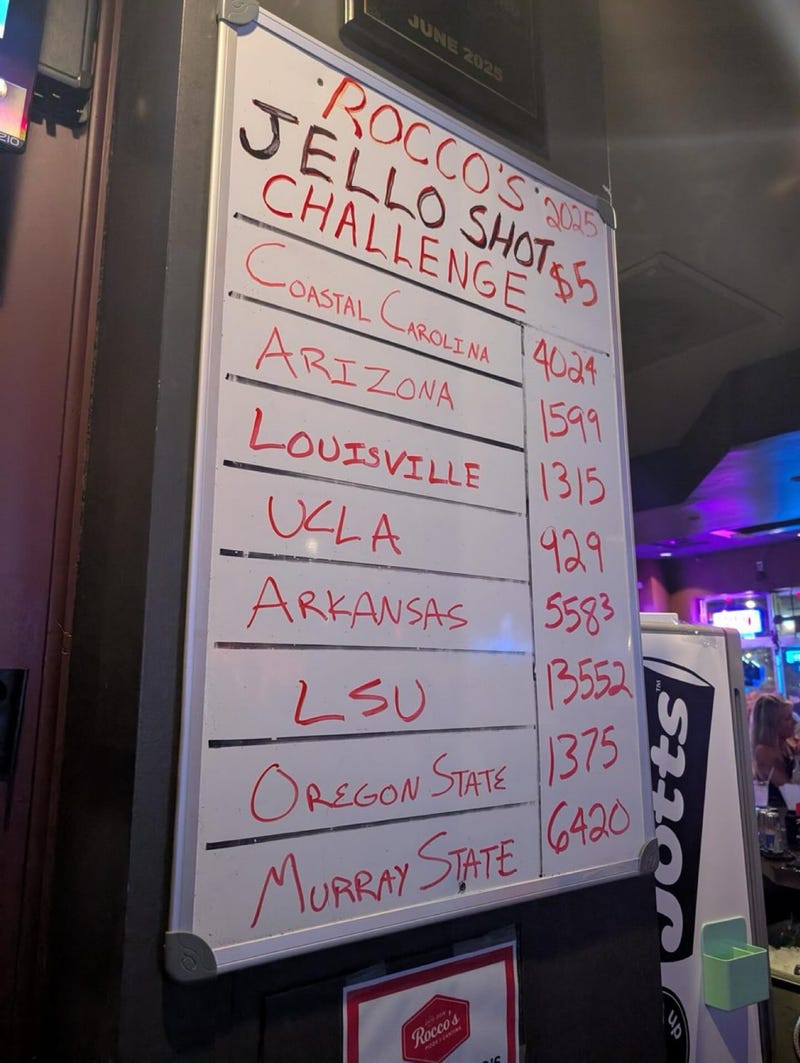 JUNE 2025
ROCCO'S 2025
JELLO SHOT
CHALLENGE $5
COASTAL CAROLINA 4024
ARIZONA 1599
LOUISVILLE 1315
UCLA 929
ARKANSAS 5583
LSU 13552
OREGON STATE 1375
MURRAY STATE 6420
Jotts™
up
Rocco's